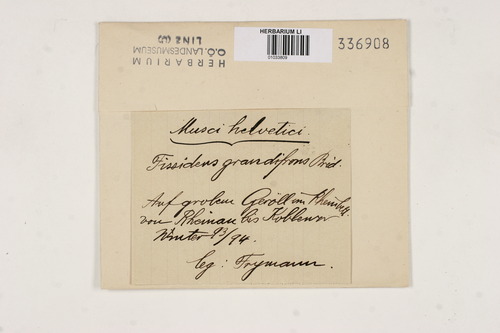 HERBARIUM LI
01033809
336908
HERBARIUM
O.Ö. LANDESMUSEUM
LINZ (LI)
Musci helvetici.
Fissidens grandifrons Brid.
Auf grobem Geröll im Rheinbett
von Rheinau bis Koblenz
Winter 93/94.
leg: Frymann.